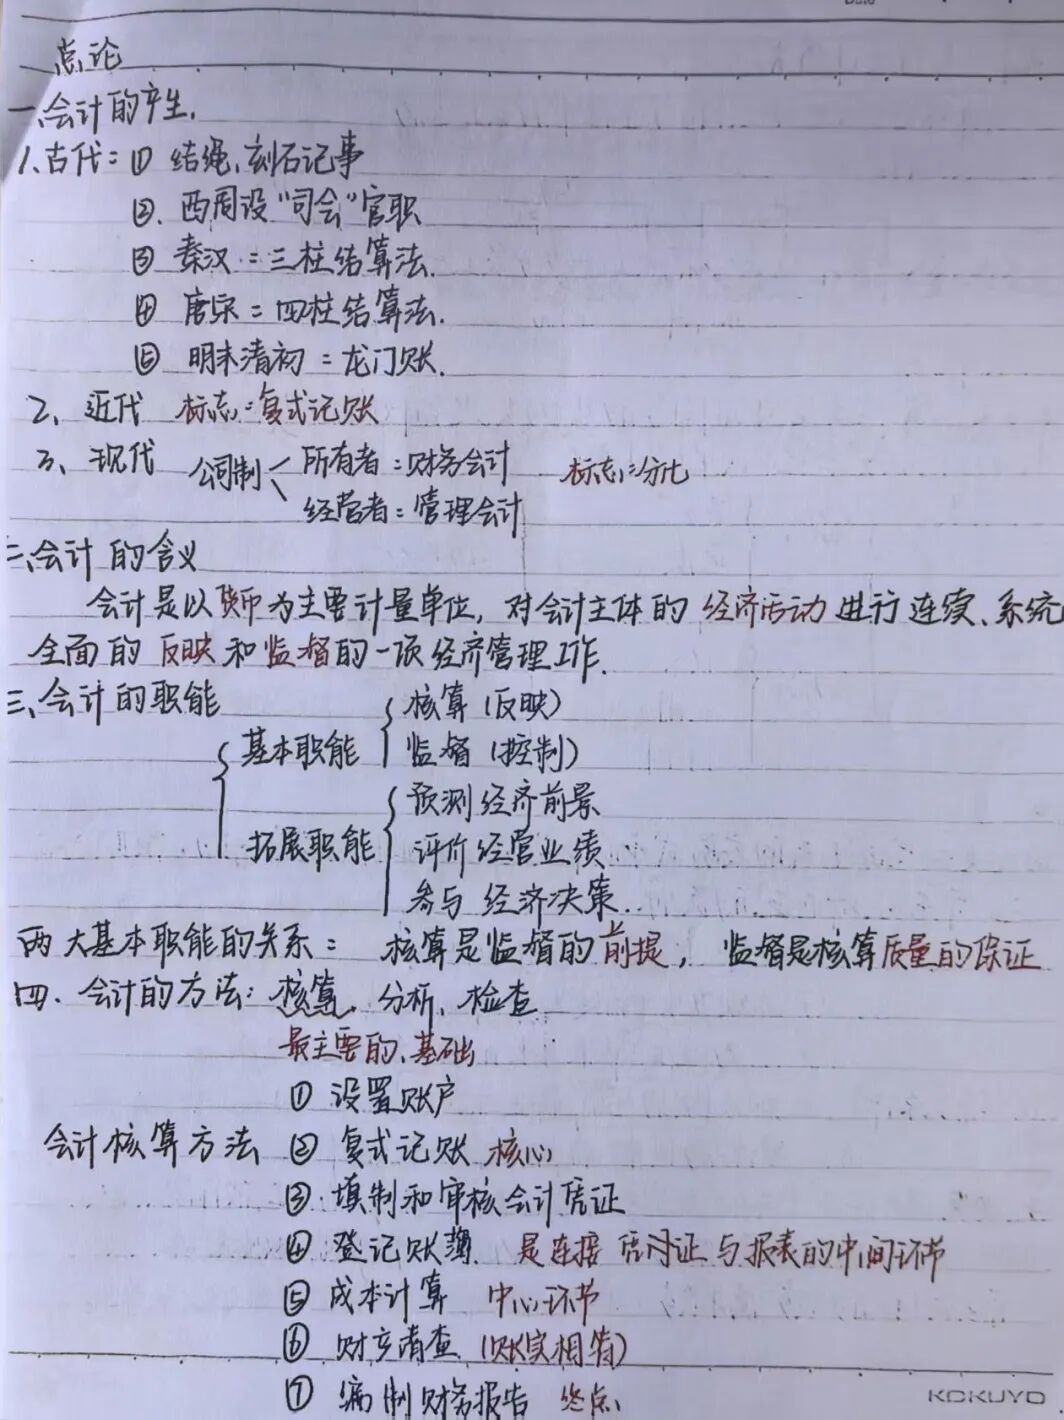 Date
总论
一、会计的产生.
1、古代: ① 结绳、刻石记事
②. 西周设“司会”官职
③ 秦汉: 三柱结算法.
④ 唐宋: 四柱结算法.
⑤ 明末清初: 龙门账.
2、近代 标志: 复式记账
3、现代 公司制 所有者: 财务会计 标志: 分化
经营者: 管理会计
二、会计的含义
会计是以货币为主要计量单位, 对会计主体的经济活动进行连续、系统
全面的反映和监督的一项经济管理工作.
三、会计的职能
基本职能 核算 (反映)
监督 (控制)
拓展职能 预测经济前景
评价经营业绩
参与经济决策
两大基本职能的关系: 核算是监督的前提, 监督是核算质量的保证
四. 会计的方法: 核算、分析、检查
最主要的、基础
① 设置账户
会计核算方法 ② 复式记账 核心
③ 填制和审核会计凭证
④ 登记账薄 是连接凭证与报表的中间环节
⑤ 成本计算 中心环节
⑥ 财产清查 (账实相符)
⑦ 编制财务报告 终点
KOKUYO